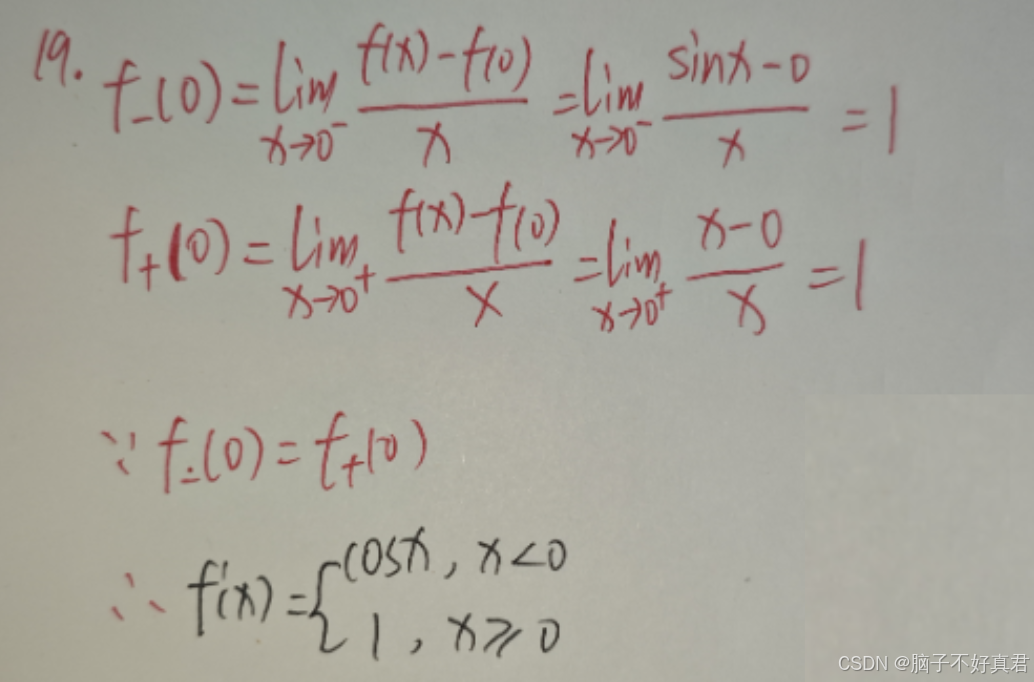 19. f₋(0) = lim_{x→0⁻} (f(x)-f(0))/x = lim_{x→0⁻} (sinx-0)/x = 1
f₊(0) = lim_{x→0⁺} (f(x)-f(0))/x = lim_{x→0⁺} (x-0)/x = 1
∵ f₋(0) = f₊(0)
∴ f'(x) = { cosx, x<0
1, x⩾0
CSDN @脑子不好真君